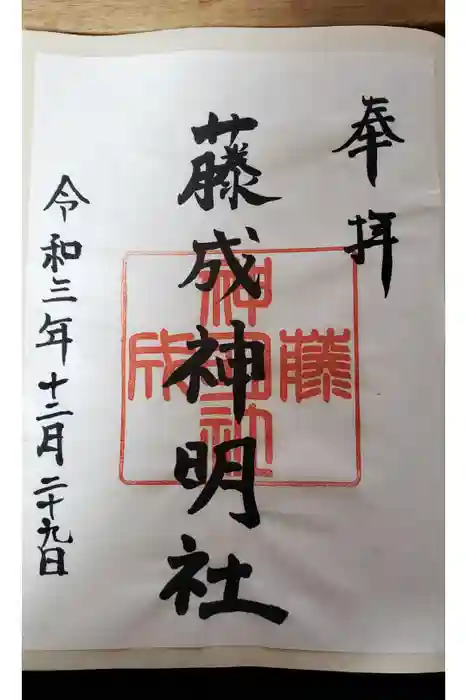 奉拝
藤成神明社
藤成
神明社
令和三年十二月二十九日